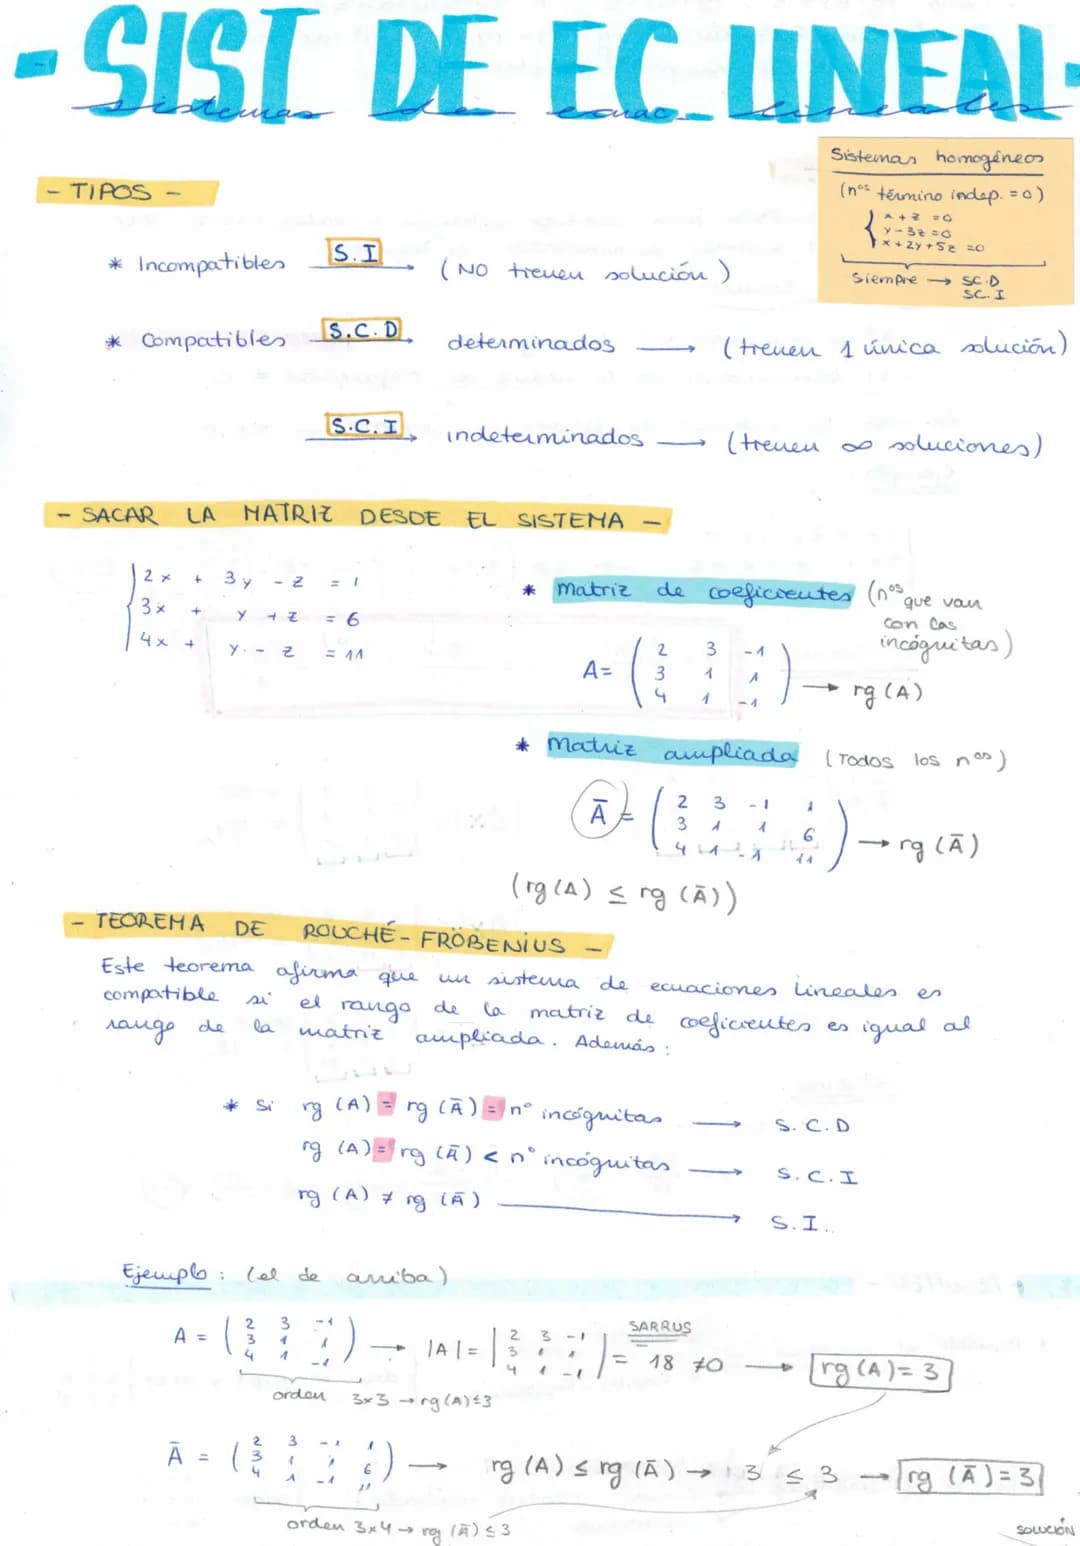 - SIST DE EC LINEAL-
sistemas de ecuac. lineales
Sistemas homogéneos
(nos término indep. = 0)
x + z = 0
y - 3z = 0
x + 2y + 5z = 0
Siempre → SC.D
SC.I
- TIPOS -
* Incompatibles S.I → (NO tienen solución)
* Compatibles S.C.D → determinados → (tienen 1 única solución)
S.C.I → indeterminados → (tienen ∞ soluciones)
- SACAR LA MATRIZ DESDE EL SISTEMA -
2x + 3y - z = 1
3x + y + z = 6
4x + y - z = 11
* Matriz de coeficientes (nos que van
con las
incógnitas)
A = ( 2 3 -1
3 1 1
4 1 -1 ) → rg (A)
* Matriz ampliada (Todos los nos)
Ā = ( 2 3 -1 1
3 1 1 6
4 1 -1 11 ) → rg (Ā)
(rg (A) ≤ rg (Ā))
- TEOREMA DE ROUCHÉ - FRÖBENIUS -
Este teorema afirma que un sistema de ecuaciones lineales es
compatible si el rango de la matriz de coeficientes es igual al
rango de la matriz ampliada. Además:
* Si rg (A) = rg (Ā) = nº incógnitas → S.C.D
rg (A) = rg (Ā) < nº incógnitas → S.C.I
rg (A) ≠ rg (Ā) → S.I..
Ejemplo: (el de arriba)
A = ( 2 3 -1
3 1 1
4 1 -1 ) → |A| = | 2 3 -1
3 1 1
4 1 -1 | = SARRUS = 18 ≠0 → rg (A) = 3
orden 3x3 → rg(A)≤3
Ā = ( 2 3 -1 1
3 1 1 6
4 1 -1 11 ) → rg (A) ≤ rg (Ā) → 3 ≤ 3 → rg (Ā) = 3
orden 3x4 → rg (Ā) ≤ 3
SOLUCIÓN